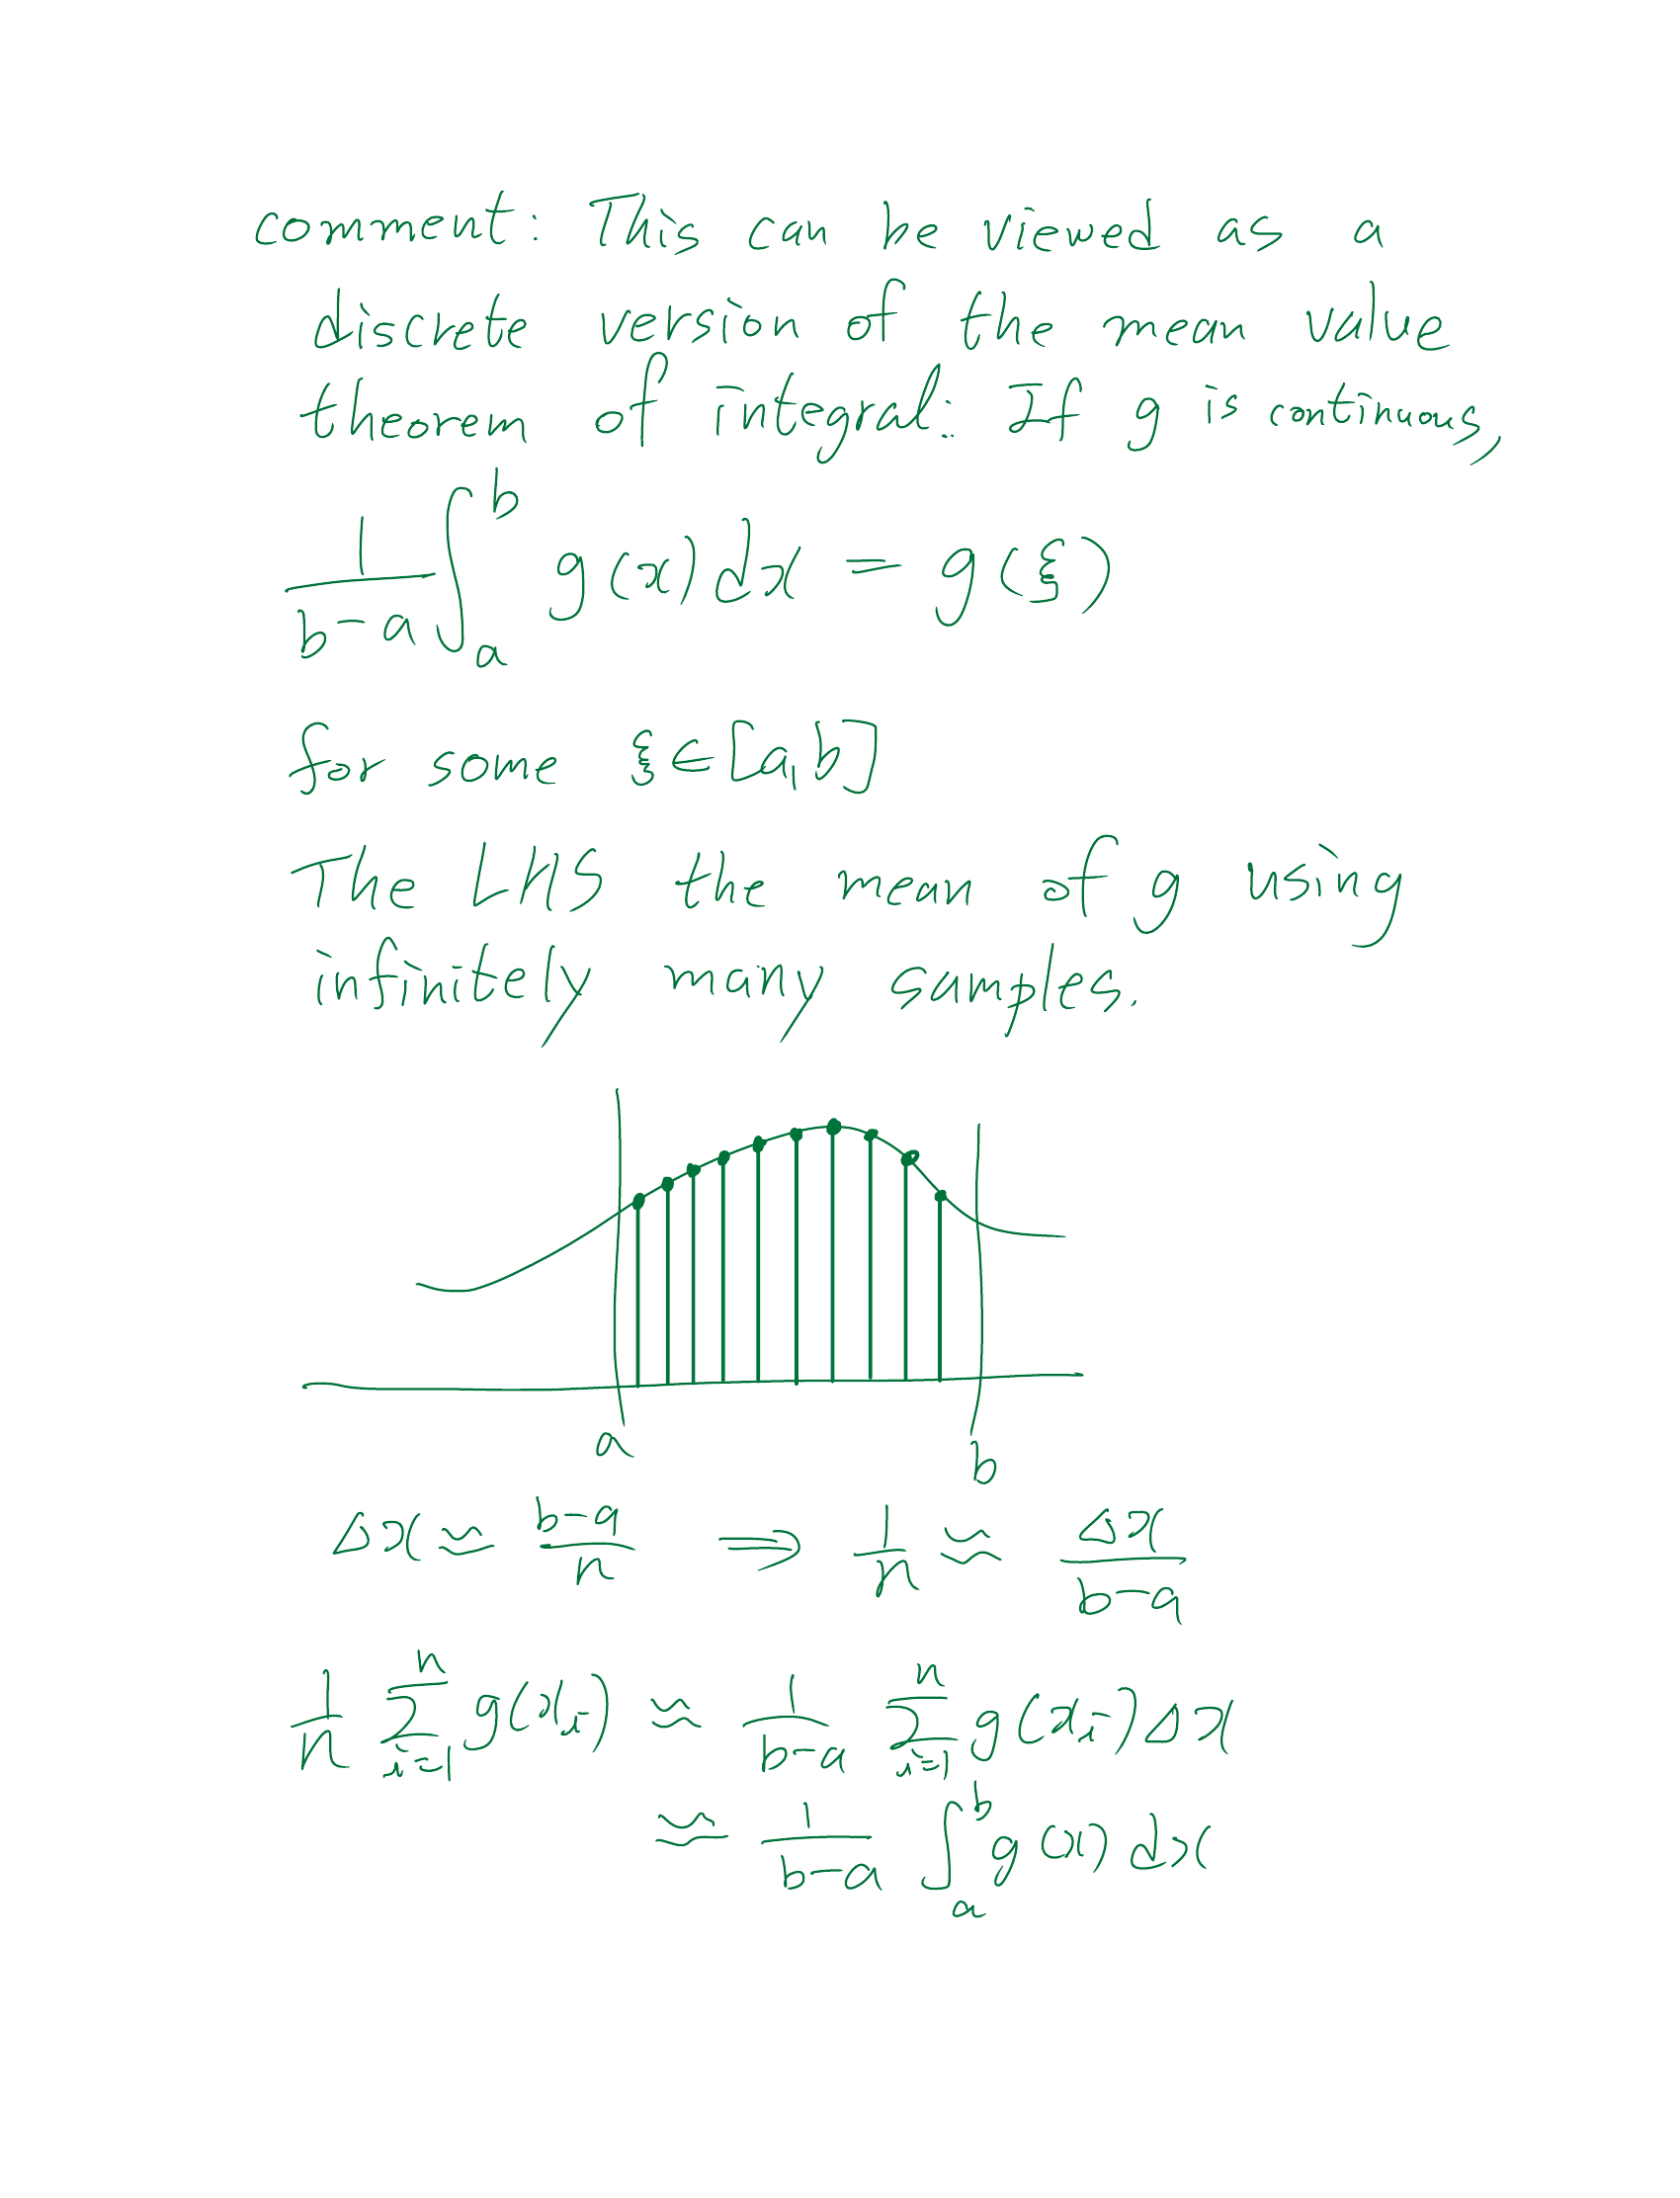 comment: This can be viewed as a
discrete version of the mean value
theorem of integral: If g is continuous,
\frac{1}{b-a} \int_a^b g(x) dx = g(ξ)
for some ξ ∈ [a,b]
The LHS the mean of g using
infinitely many samples.
a b
Δx ≈ \frac{b-a}{n} ⇒ \frac{1}{n} ≈ \frac{Δx}{b-a}
\frac{1}{n} \sum_{i=1}^n g(x_i) ≈ \frac{1}{b-a} \sum_{i=1}^n g(x_i) Δx
≈ \frac{1}{b-a} \int_a^b g(x) dx